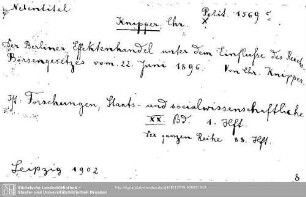 Nebentitel
Polit. 1569 c
X
Knipper Chr.
Der Berliner Effektenhandel unter dem Einflusse des Reichs-
Börsengesetzes vom 22. Juni 1896. Von Chr. Knipper.
Jn: Forschungen, Staats- und socialwissenschaftliche
XX Bd. 1. Hft.
Der ganzen Reihe 88. Hft.
Leipzig 1902
8
Sächsische Landesbibliothek -
Staats- und Universitätsbibliothek Dresden